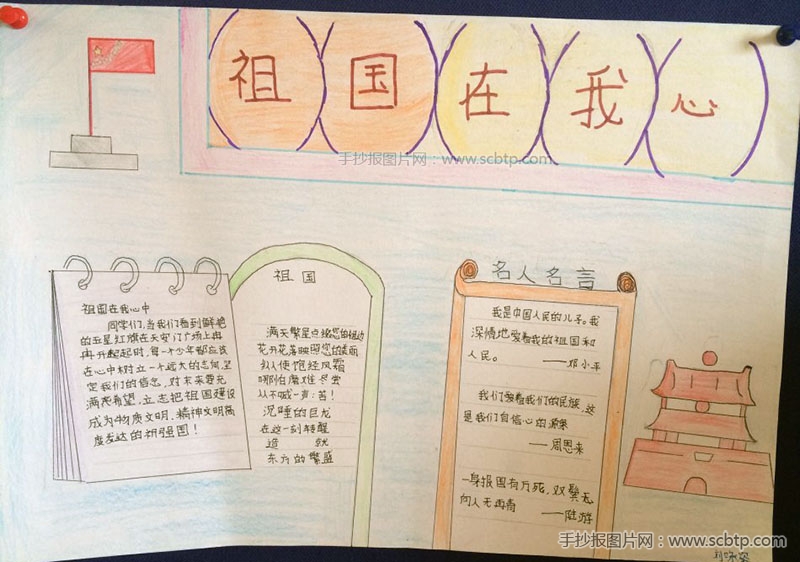 祖国在我心
手抄报图片网：www.scbtp.com
祖国在我心中
同学们，当我们看到鲜艳
的五星红旗在天安门广场上冉
冉升起起时，每一个少年都应该
在心中树立一个远大的志向，坚
定我们的信念，对未来要充
满希望，立志把祖国建设
成为物质文明，精神文明高
度发达的祥强国！
祖国
满天繁星点缀您的
花开花落映照您的美丽
纵使饱经风霜
哪怕磨难尽尝
从不喊一声：苦！
沉睡的巨龙
在这一刻转醒
造就
东方的繁盛
名人名言
我是中国人民的儿子。我
深情地爱着我的祖国和
人民。
——邓小平
我们爱着我们的民族，这
是我们自信心的源泉
——周恩来
一身报国有万死，双鬓无
向人无再青
——陆游
手抄报图片网：www.scbtp.com